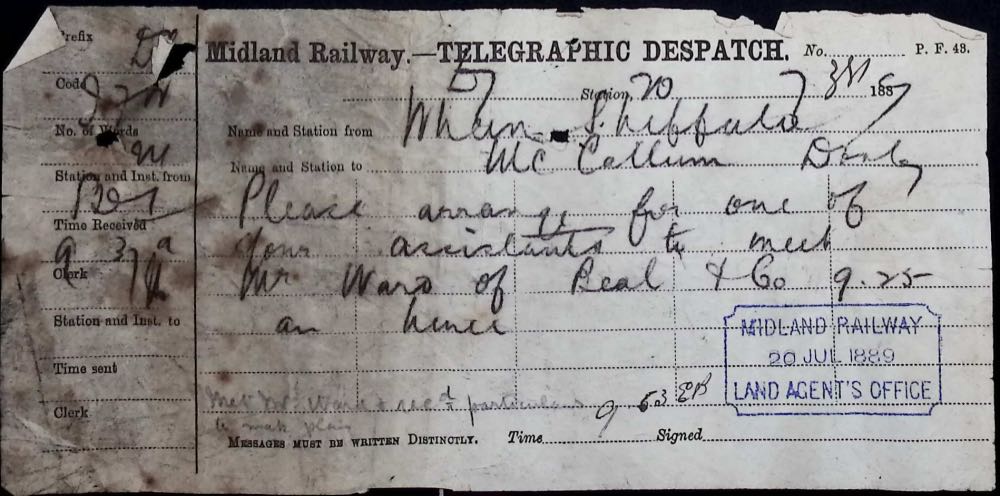 Prefix
Midland Railway.—TELEGRAPHIC DESPATCH. No. P. F. 43.
Code
Station 20 7 188
No. of Words
Name and Station from Sheffield
Name and Station to McCallum Derby
Station and Inst. from
Please arrange for one of
Time Received
your assistants to meet
9 37 a
Clerk
Mr Ward of Beal & Co 9.25
Station and Inst. to
an hence
MIDLAND RAILWAY
20 JUL 1889
LAND AGENT'S OFFICE
Time sent
Met Mr Ward & recd particulars
9 53
Clerk
to make plan
MESSAGES MUST BE WRITTEN DISTINCTLY. Time Signed